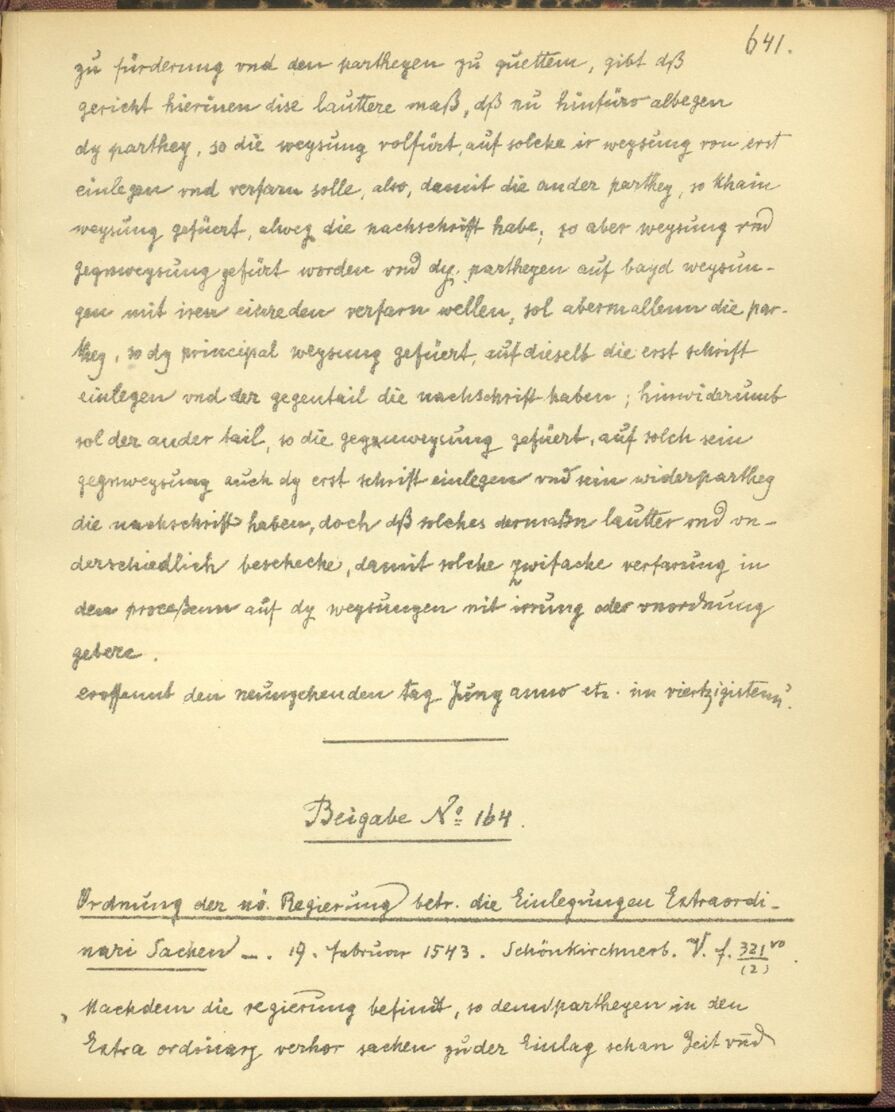 641.
zu fürderung vnd den partheyen zu guettem, gibt dß
gericht hierinen dise lauttere maß, dß nu hinfüro albegen
dy parthey, so die weysung volfürt, auf solche ir weysung von erst
einlegen vnd verfarn solle, also, damit die ander parthey, so khain
weysung gefüert, alweg die nachschrifft habe; so aber weysung vnd
gegnweysung gefürt worden vnd dy partheyen auf bayd weysun-
gen mit iren einreden verfarn wellen, sol abermallenn die par-
they, so dy principal weysung gefüert, auf dieselb die erst schrift
einlegen vnd der gegentail die nachschrift haben; hinwiderumb
sol der ander tail, so die gegenweysung gefüert, auf solch sein
gegnweysung auch dy erst schrift einlegen vnd sein widerparthey
die nachschrift haben, doch dß solches dermaßn lautter vnd vn-
derschiedlich beschehe, damit solche zwifache verfarung in
den proceßenn auf dy weysungen nit irrung oder vnordnung
gebere.
eroffennt den neunzehenden tag Juny anno etc. im viertzigistenn.
Beigabe No 164.
Ordnung der nö. Regierung betr. die Einlegungen Extraordi-
nari Sachen —. 19. februar 1543. Schönkirchnerb. V. f. 321 vo
(2).
Nachdem die regierung befindt, so denn partheyen in den
Extra ordinary verhor sachen zu der Einlag schan Zeit vnd